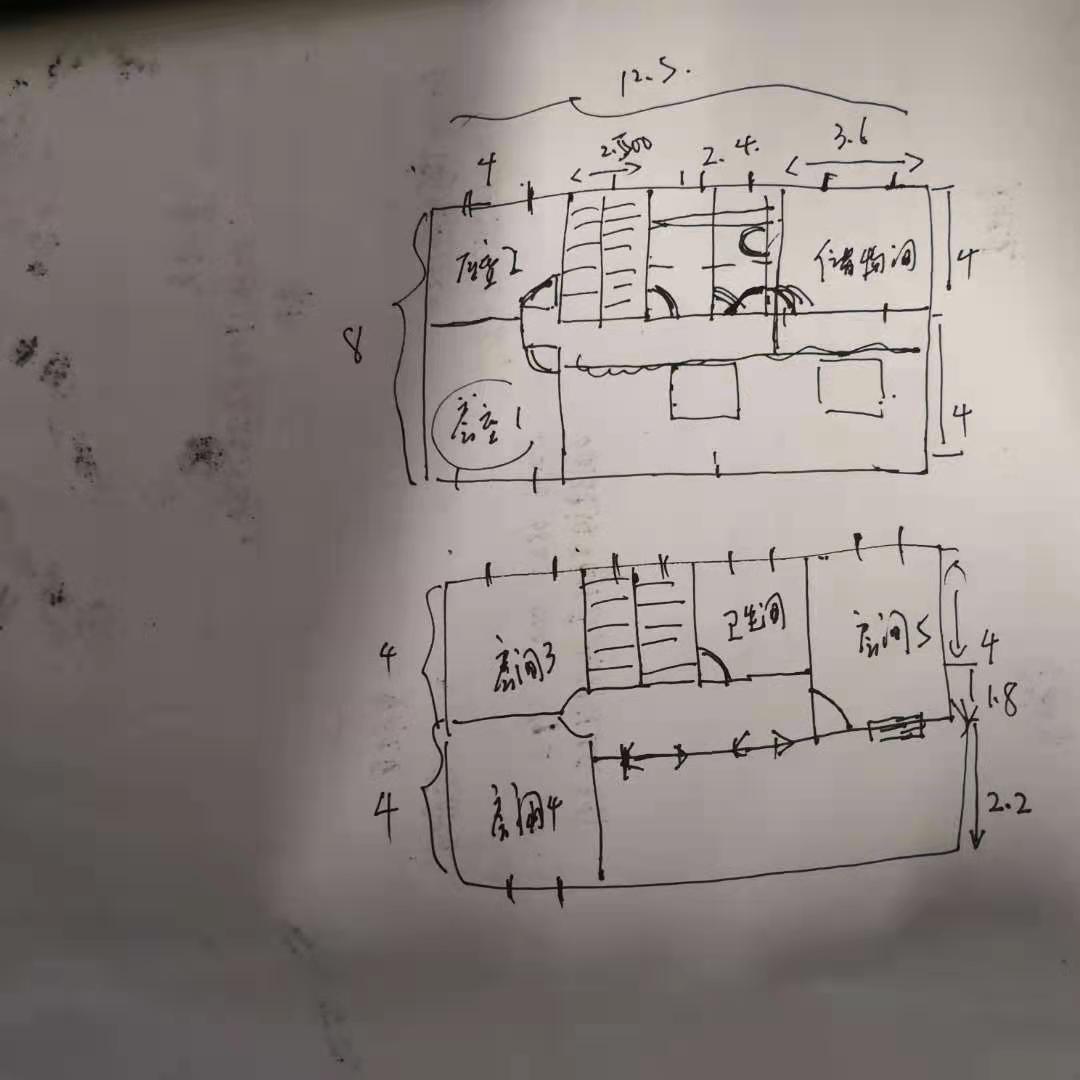 12.5.
4
2.500
2.4.
3.6
居室2
储物间
4
8
居室1
4
4
房间3
卫生间
房间5
4
1.8
4
房间4
2.2